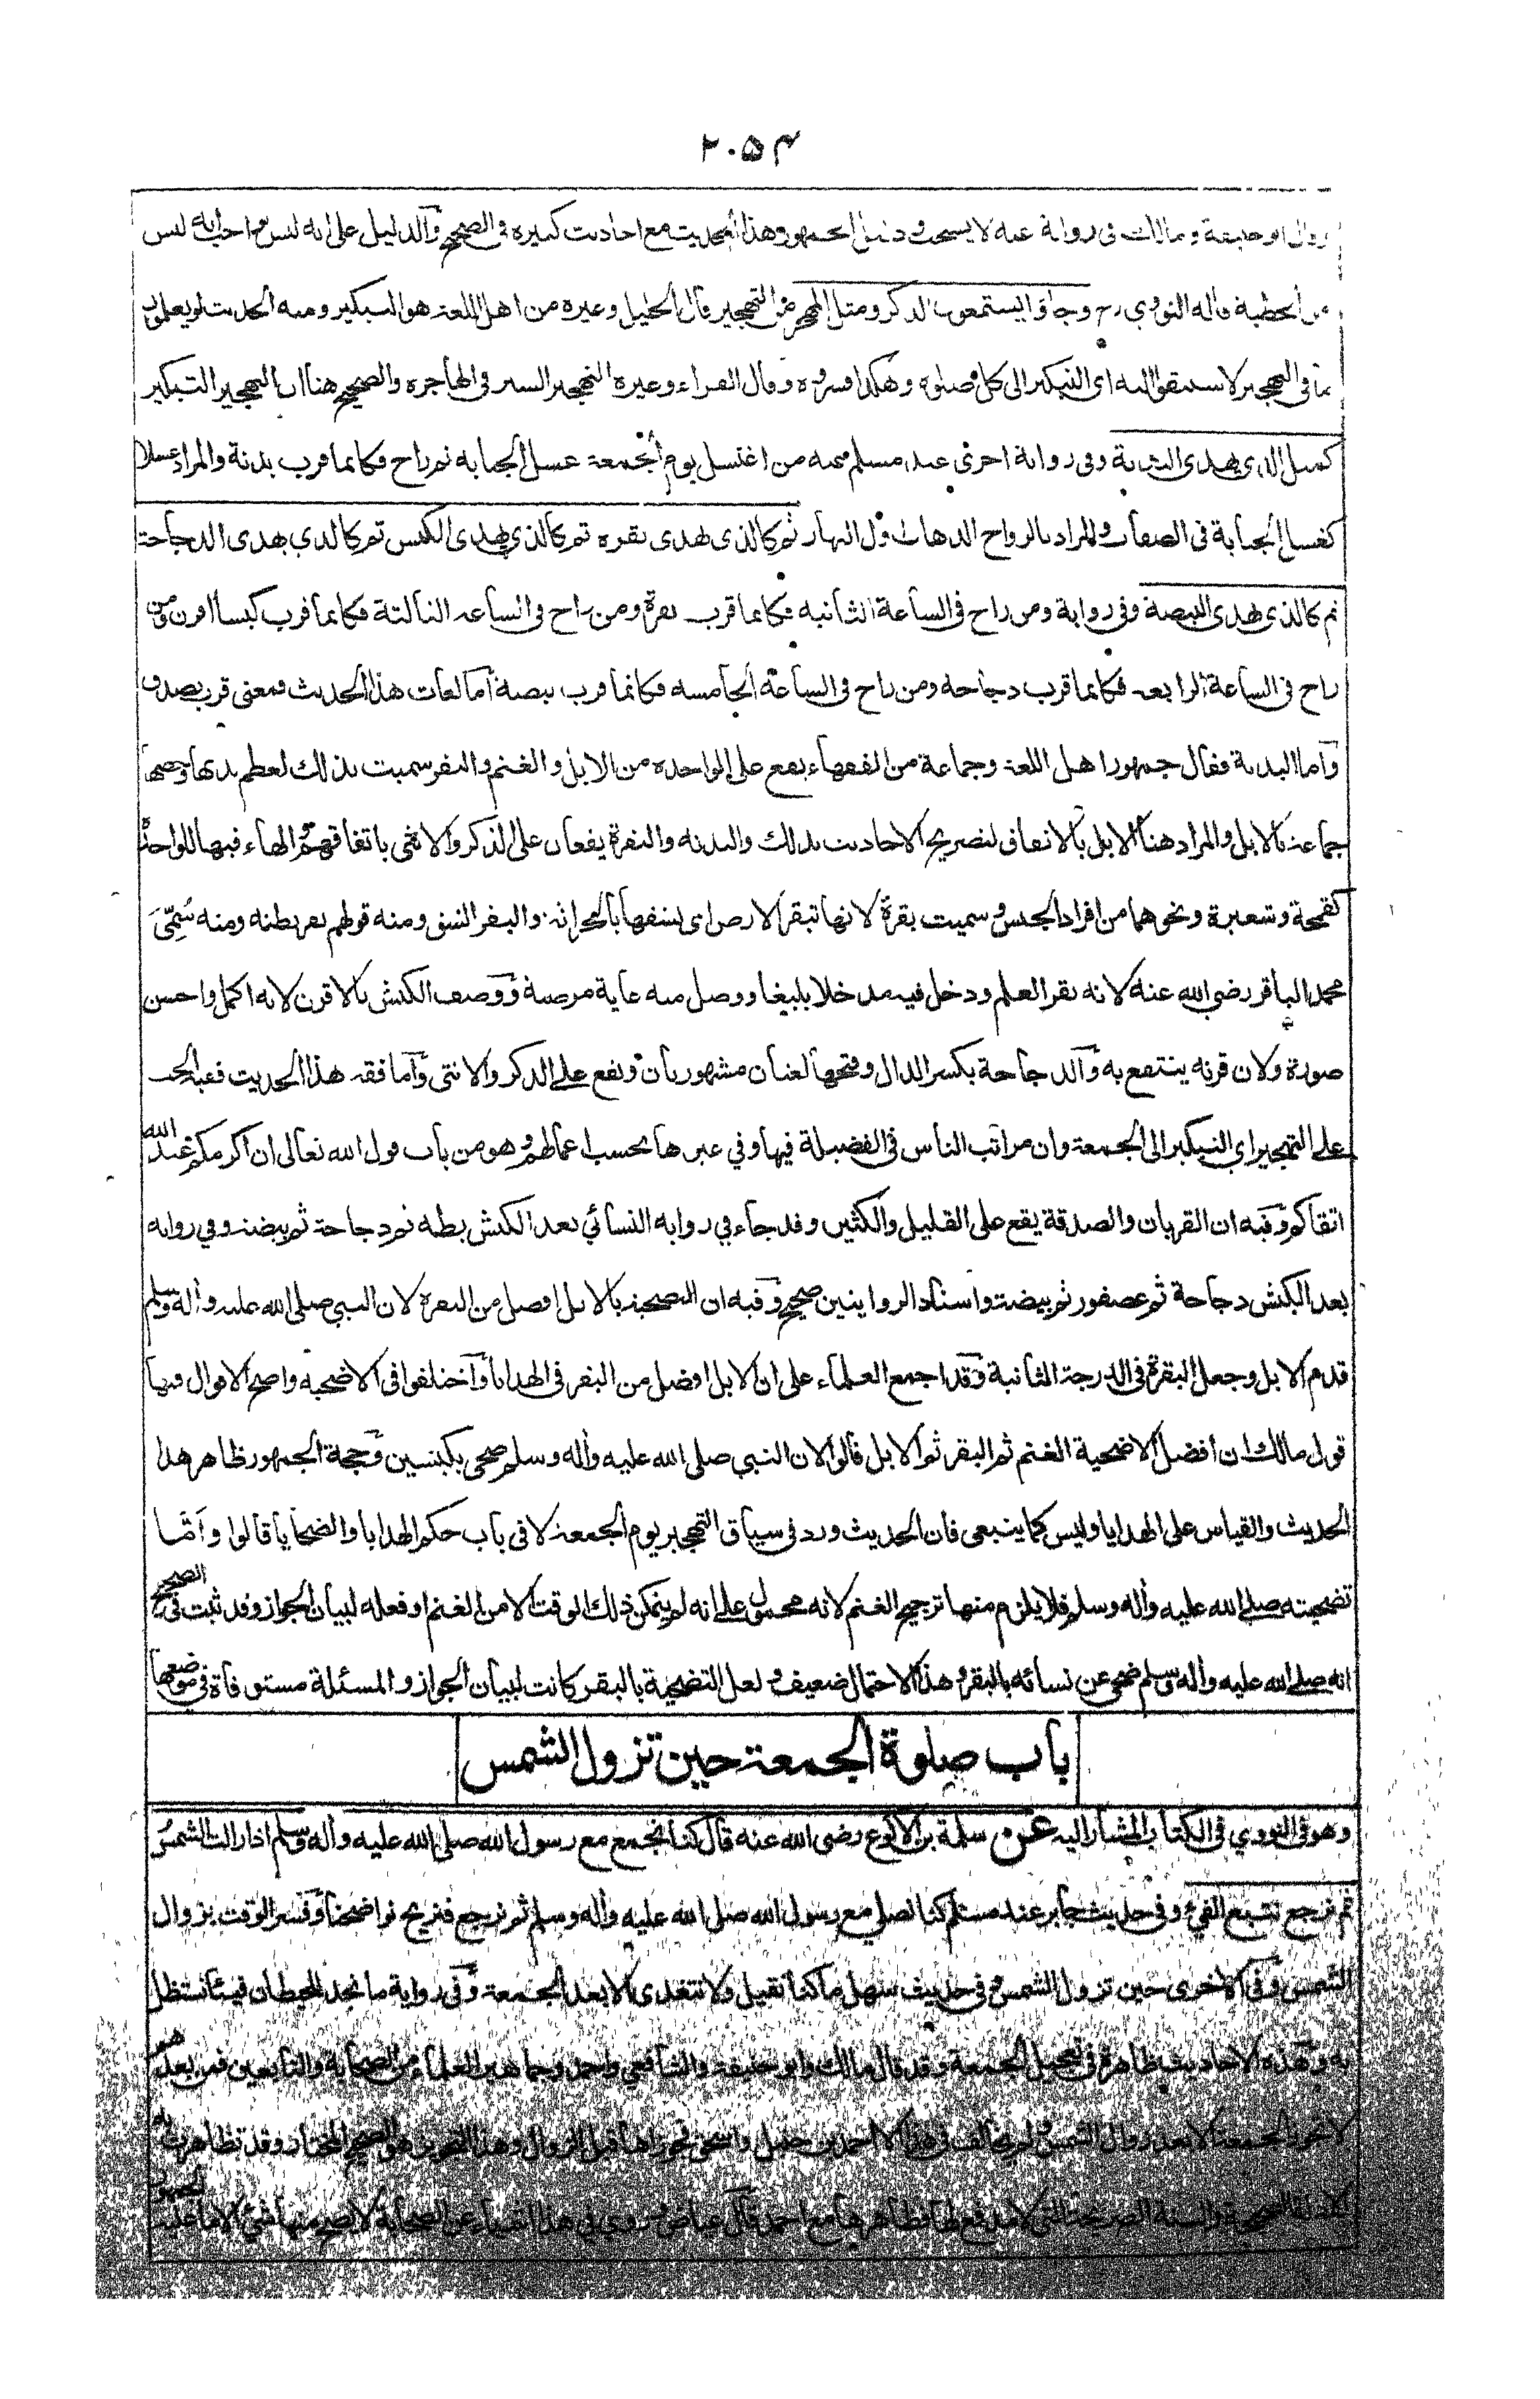 ۲۰۵۴
وقال ابو حنيفة ومالك فى رواية عنه لا يستحب ودليل الجمهور هذا الحديث مع احاديث كثيرة فى الصحيح والدليل على انه ليس بواجب انه ليس
من الخطبة قاله النووي رح وجاؤا يستمعون الذكر ومثل المهجر من التهجير قال الخليل وغيره من اهل اللغة هو التبكير ومنه الحديث لو يعلمون
ما فى التهجير لاستبقوا اليه اى التبكير الى كل صلوة وهكذا فسروه وقال الفراء وغيره التهجير السير فى الهاجرة والصحيح هنا ان التهجير التبكير
كمثل الذى يهدى البدنة وفى رواية اخرى عند مسلم عنه من اغتسل يوم الجمعة غسل الجنابة ثم راح فكانما قرب بدنة والمراد غسلا
كغسل الجنابة فى الصفات والمراد بالرواح الذهاب اول النهار ثم كالذى يهدى بقرة ثم كالذى يهدى الكبش ثم كالذي يهدى الدجاجة
ثم كالذى يهدى البيضة وفى رواية ومن راح فى الساعة الثانية فكانما قرب بقرة ومن راح فى الساعة الثالثة فكانما قرب كبشا اقرن ومن
راح فى الساعة الرابعة فكانما قرب دجاجة ومن راح فى الساعة الخامسة فكانما قرب بيضة أما لغات هذا الحديث فمعنى قرب تصدق
وأما البدنة فقال جمهور اهل اللغة وجماعة من الفقهاء يقع على الواحدة من الابل والغنم والبقر سميت بذلك لعظم بدنها وخصها
جماعة بالابل والمراد هنا الابل بالاتفاق لتصريح الاحاديث بذلك والبدنة والبقرة يقعان على الذكر والانثى باتفاقهم والهاء فيها للواحدة
كقمحة وشعيرة ونحوهما من افراد الجنس وسميت بقرة لانها تبقر الارض اى تشقها بالحراثة والبقر الشق ومنه قولهم بقر بطنه ومنه سُمِّىَ
محمد الباقر رضي الله عنه لانه بقر العلم ودخل فيه مدخلا بليغا ووصل منه غاية مرضية ووصف الكبش بالاقرن لانه اكمل واحسن
صورة ولان قرنه ينتفع به والدجاجة بكسر الدال وفتحها لغتان مشهورتان ويقع على الذكر والانثى وأما فقه هذا الحديث ففيه الحث
على التهجير اي التبكير الى الجمعة وان مراتب الناس فى الفضيلة فيها وفي غيرها بحسب اعمالهم وهو من باب قول الله تعالى ان اكرمكم عند الله
اتقاكم وفيه ان القربان والصدقة يقع على القليل والكثير وقد جاء في رواية النسائي بعد الكبش بطة ثم دجاجة ثم بيضة وفي رواية
بعد الكبش دجاجة ثم عصفور ثم بيضة واسناد الروايتين صحيح وفيه ان التضحية بالابل افضل من البقرة لان النبي صلى الله عليه وأله وسلم
قدم الابل وجعل البقرة فى الدرجة الثانية وقد اجمع العلماء على ان الابل افضل من البقر فى الهدايا وأختلفوا فى الاضحية واصح الاقوال فيها
قول مالك ان أفضل الاضحية الغنم ثم البقر ثم الابل قالوا لان النبي صلى الله عليه وأله وسلم ضحى بكبشين وحجة الجمهور ظاهر هذا
الحديث والقياس على الهدايا وليس كما ينبغى فان الحديث ورد فى سياق التهجير يوم الجمعة لا فى باب حكم الهدايا والضحايا قالوا وأمّا
تضحيته صلى الله عليه وأله وسلم فلا يلزم منها ترجيح الغنم لانه محمول على انه لم يتمكن ذلك الوقت الا من الغنم او فعله لبيان الجواز وقد ثبت فى الصحيح
انه صلى الله عليه وأله وسلم ضحى عن نسائه بالبقر وهذا الاحتمال ضعيف ولعل التضحية بالبقر كانت لبيان الجواز والمسئلة مستوفاة فى موضعها
باب صلوة الجمعة حين تزول الشمس
وهو فى النووي فى الكتاب المشار اليه عن سلمة بن الاكوع رضى الله عنه قال كنا نجمع مع رسول الله صلى الله عليه وأله وسلم اذا زالت الشمسُ
ثم نرجع نتتبع الفيء وفى حديث جابر عند مسلم كنا نصلي مع رسول الله صلى الله عليه وأله وسلم ثم نرجع فنريح نواضحنا وفسر الوقت بزوال
الشمس وفى الاخرى حين تزول الشمس وفى حديث سهل ما كنا نقيل ولا نتغدى الا بعد الجمعة وفى رواية ما نجد للحيطان فيئا نستظل
به وهذه الاحاديث ظاهرة فى تعجيل الجمعة وقد قال مالك وابو حنيفة والشافعي واحمد وجماهير العلماء من الصحابة والتابعين فمن بعدهم
لا تجوز الجمعة الا بعد زوال الشمس ولم يخالف فى هذا الا احمد بن حنبل واسحق فجوزاها قبل الزوال وهذا التجويز هو الصحيح المختار وقد تظاهرت به
الادلة الصحيحة والسنة الصريحة التى لا مدفع لها فظاهرها مع احمد قال عياض وروي فى هذا اشياء عن الصحابة لا يصح منها شيء الا ما عليه الجمهور